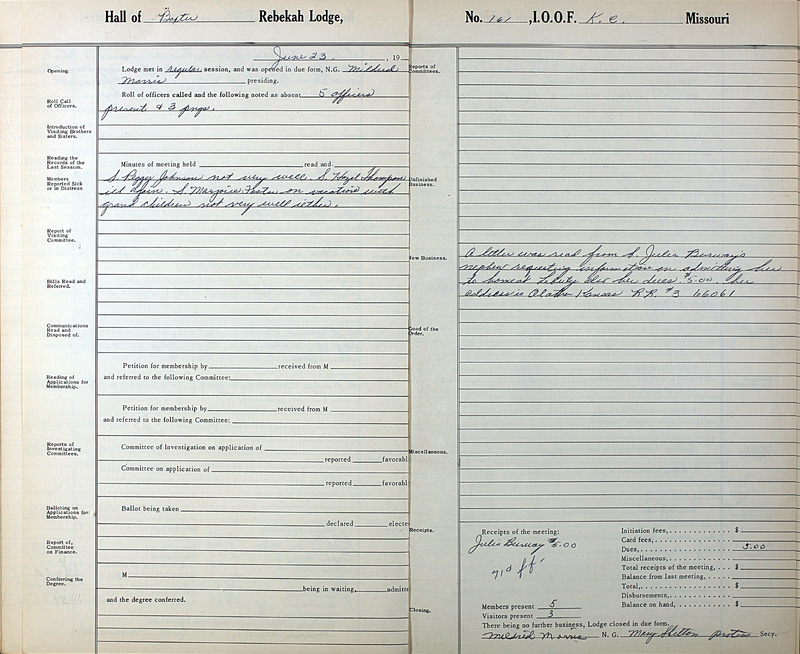 Hall of Baxter Rebekah Lodge,
June 23, 19
Opening.
Lodge met in regular session, and was opened in due form, N.G. Mildred
Morris presiding.
Roll Call
of Officers.
Roll of officers called and the following noted as absent 5 officers
present & 3 pngs.
Introduction of
Visiting Brothers
and Sisters.
Reading the
Records of the
Last Session.
Minutes of meeting held read and
Members
Reported Sick
or in Distress
S. Peggy Johnson not very well. S. Hazel Thompson
ill again. S. Marjorie Foster on vacation with
grand children not very well iether.
Report of
Visiting
Committee.
Bills Read and
Referred.
Communications
Read and
Disposed of.
Reading of
Applications for
Membership.
Petition for membership by received from M
and referred to the following Committee:
Petition for membership by received from M
and referred to the following Committee:
Reports of
Investigating
Committees.
Committee of Investigation on application of
reported favorabl
Committee on application of
reported favorabl
Balloting on
Applications for
Membership.
Ballot being taken
declared electe
Report of,
Committee
on Finance.
Conferring the
Degree.
M
being in waiting, admitte
and the degree conferred.
No. 161, I.O.O.F. K.C. Missouri
Reports of
Committees.
Unfinished
Business.
New Business.
A letter was read from S. Julia Burway's
nephew requesting information on admitting her
to home at Liberty also her dues. $5.00. her
address is Olathe Kansas R.R. #3 66061
Good of the
Order.
Miscellaneous.
Receipts.
Receipts of the meeting:
Julia Burway $5.00
Initiation fees, $
Card fees,
Dues, 5.00
Miscellaneous,
Total receipts of the meeting, $
Balance from last meeting,
Total, $
Disbursements,
Balance on hand, $
Members present 5
Visitors present 3
Closing.
There being no further business, Lodge closed in due form.
Mildred Morris N. G. Mary Shelton protem Secy.